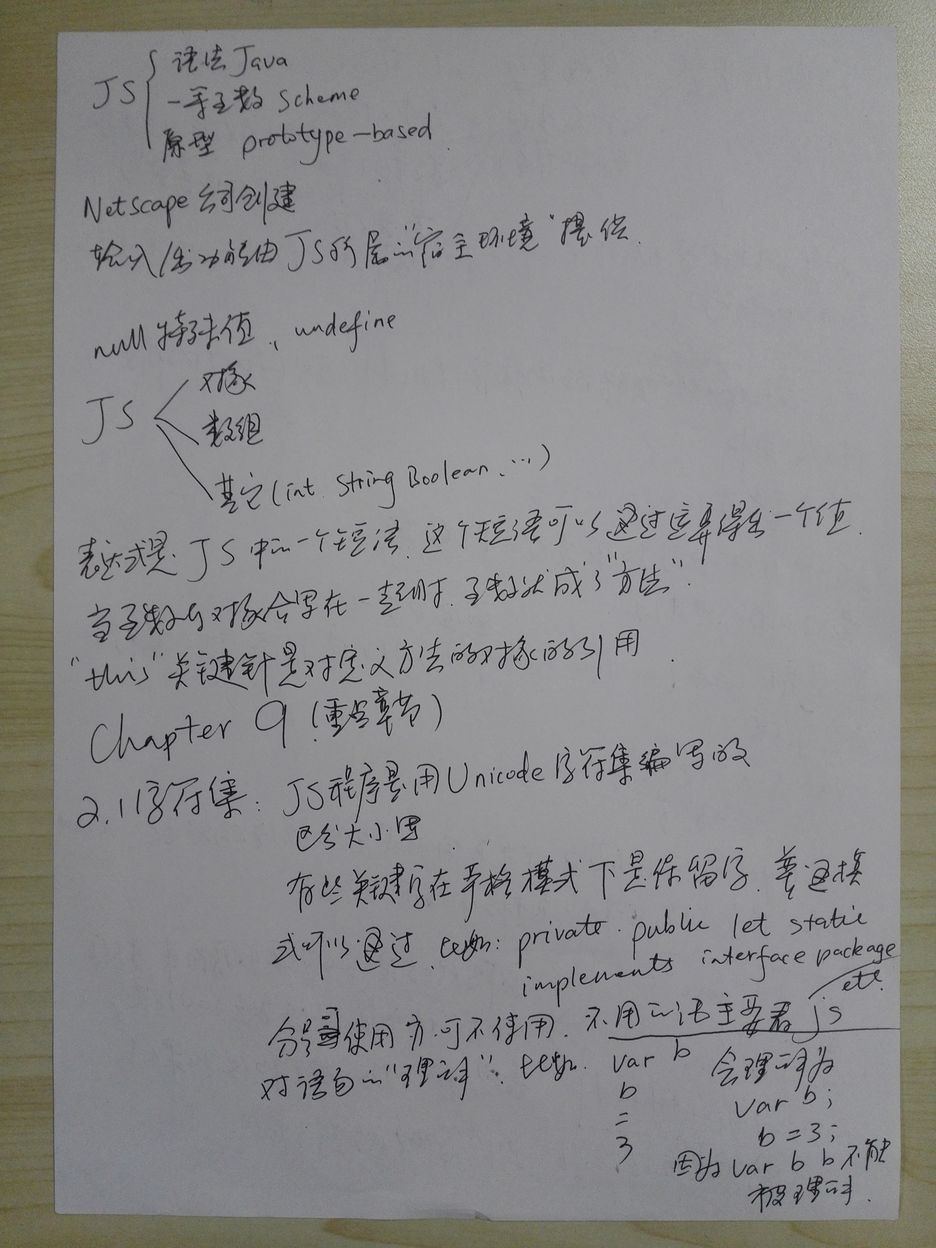 JS { 语法 Java
一等函数 Scheme
原型 prototype-based
Netscape 公司创建
输入/出功能由 JS 所属的“宿主环境”提供.
null 特殊值、undefine
JS
对象
数组
其它 (int String Boolean、…)
表达式是 JS 中的一个短语, 这个短语可以通过运算得出一个值.
当函数与对象合写在一起时, 函数就成了“方法”.
“this”关键字是对定义方法的对象的引用.
Chapter 9 (重点章节)
2.1 字符集: JS程序是用Unicode字符集编写的
区分大小写
有些关键字在严格模式下是保留字, 普通模
式可以通过, 比如: private. public let static
implements interface package
etc.
分号使用, 可不使用. 不用的话主要看js
对语句的“理解”. 比如. var b
b
=
3
会理解为
var b;
b = 3;
因为 var b b 不能
被理解.